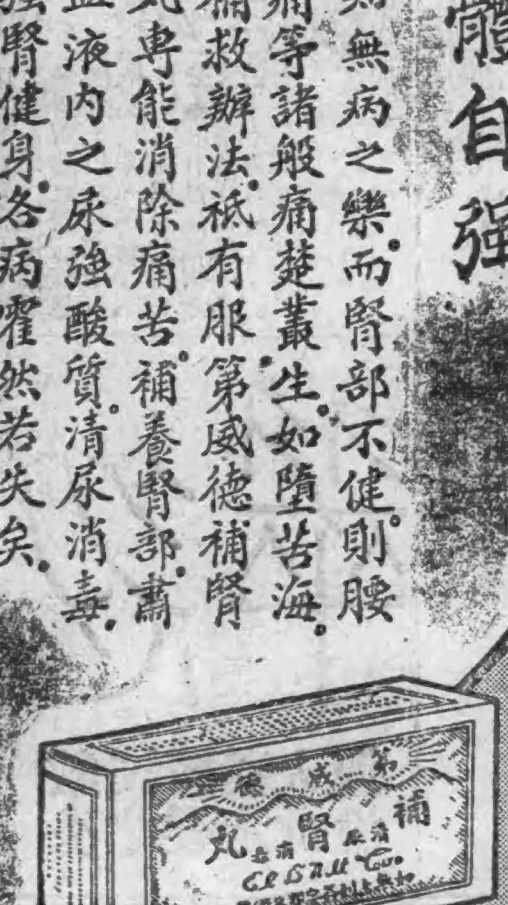 體自强
無病之樂。而腎部不健。則腰
痛等諸般痛楚叢生。如墮苦海。
補救辦法。祇有服第威德補腎
丸。專能消除痛苦。補養腎部。肅
血液內之尿強酸質。清尿消毒。
强腎健身。各病霍然若失矣。
第威德
補腎丸
清尿
消毒